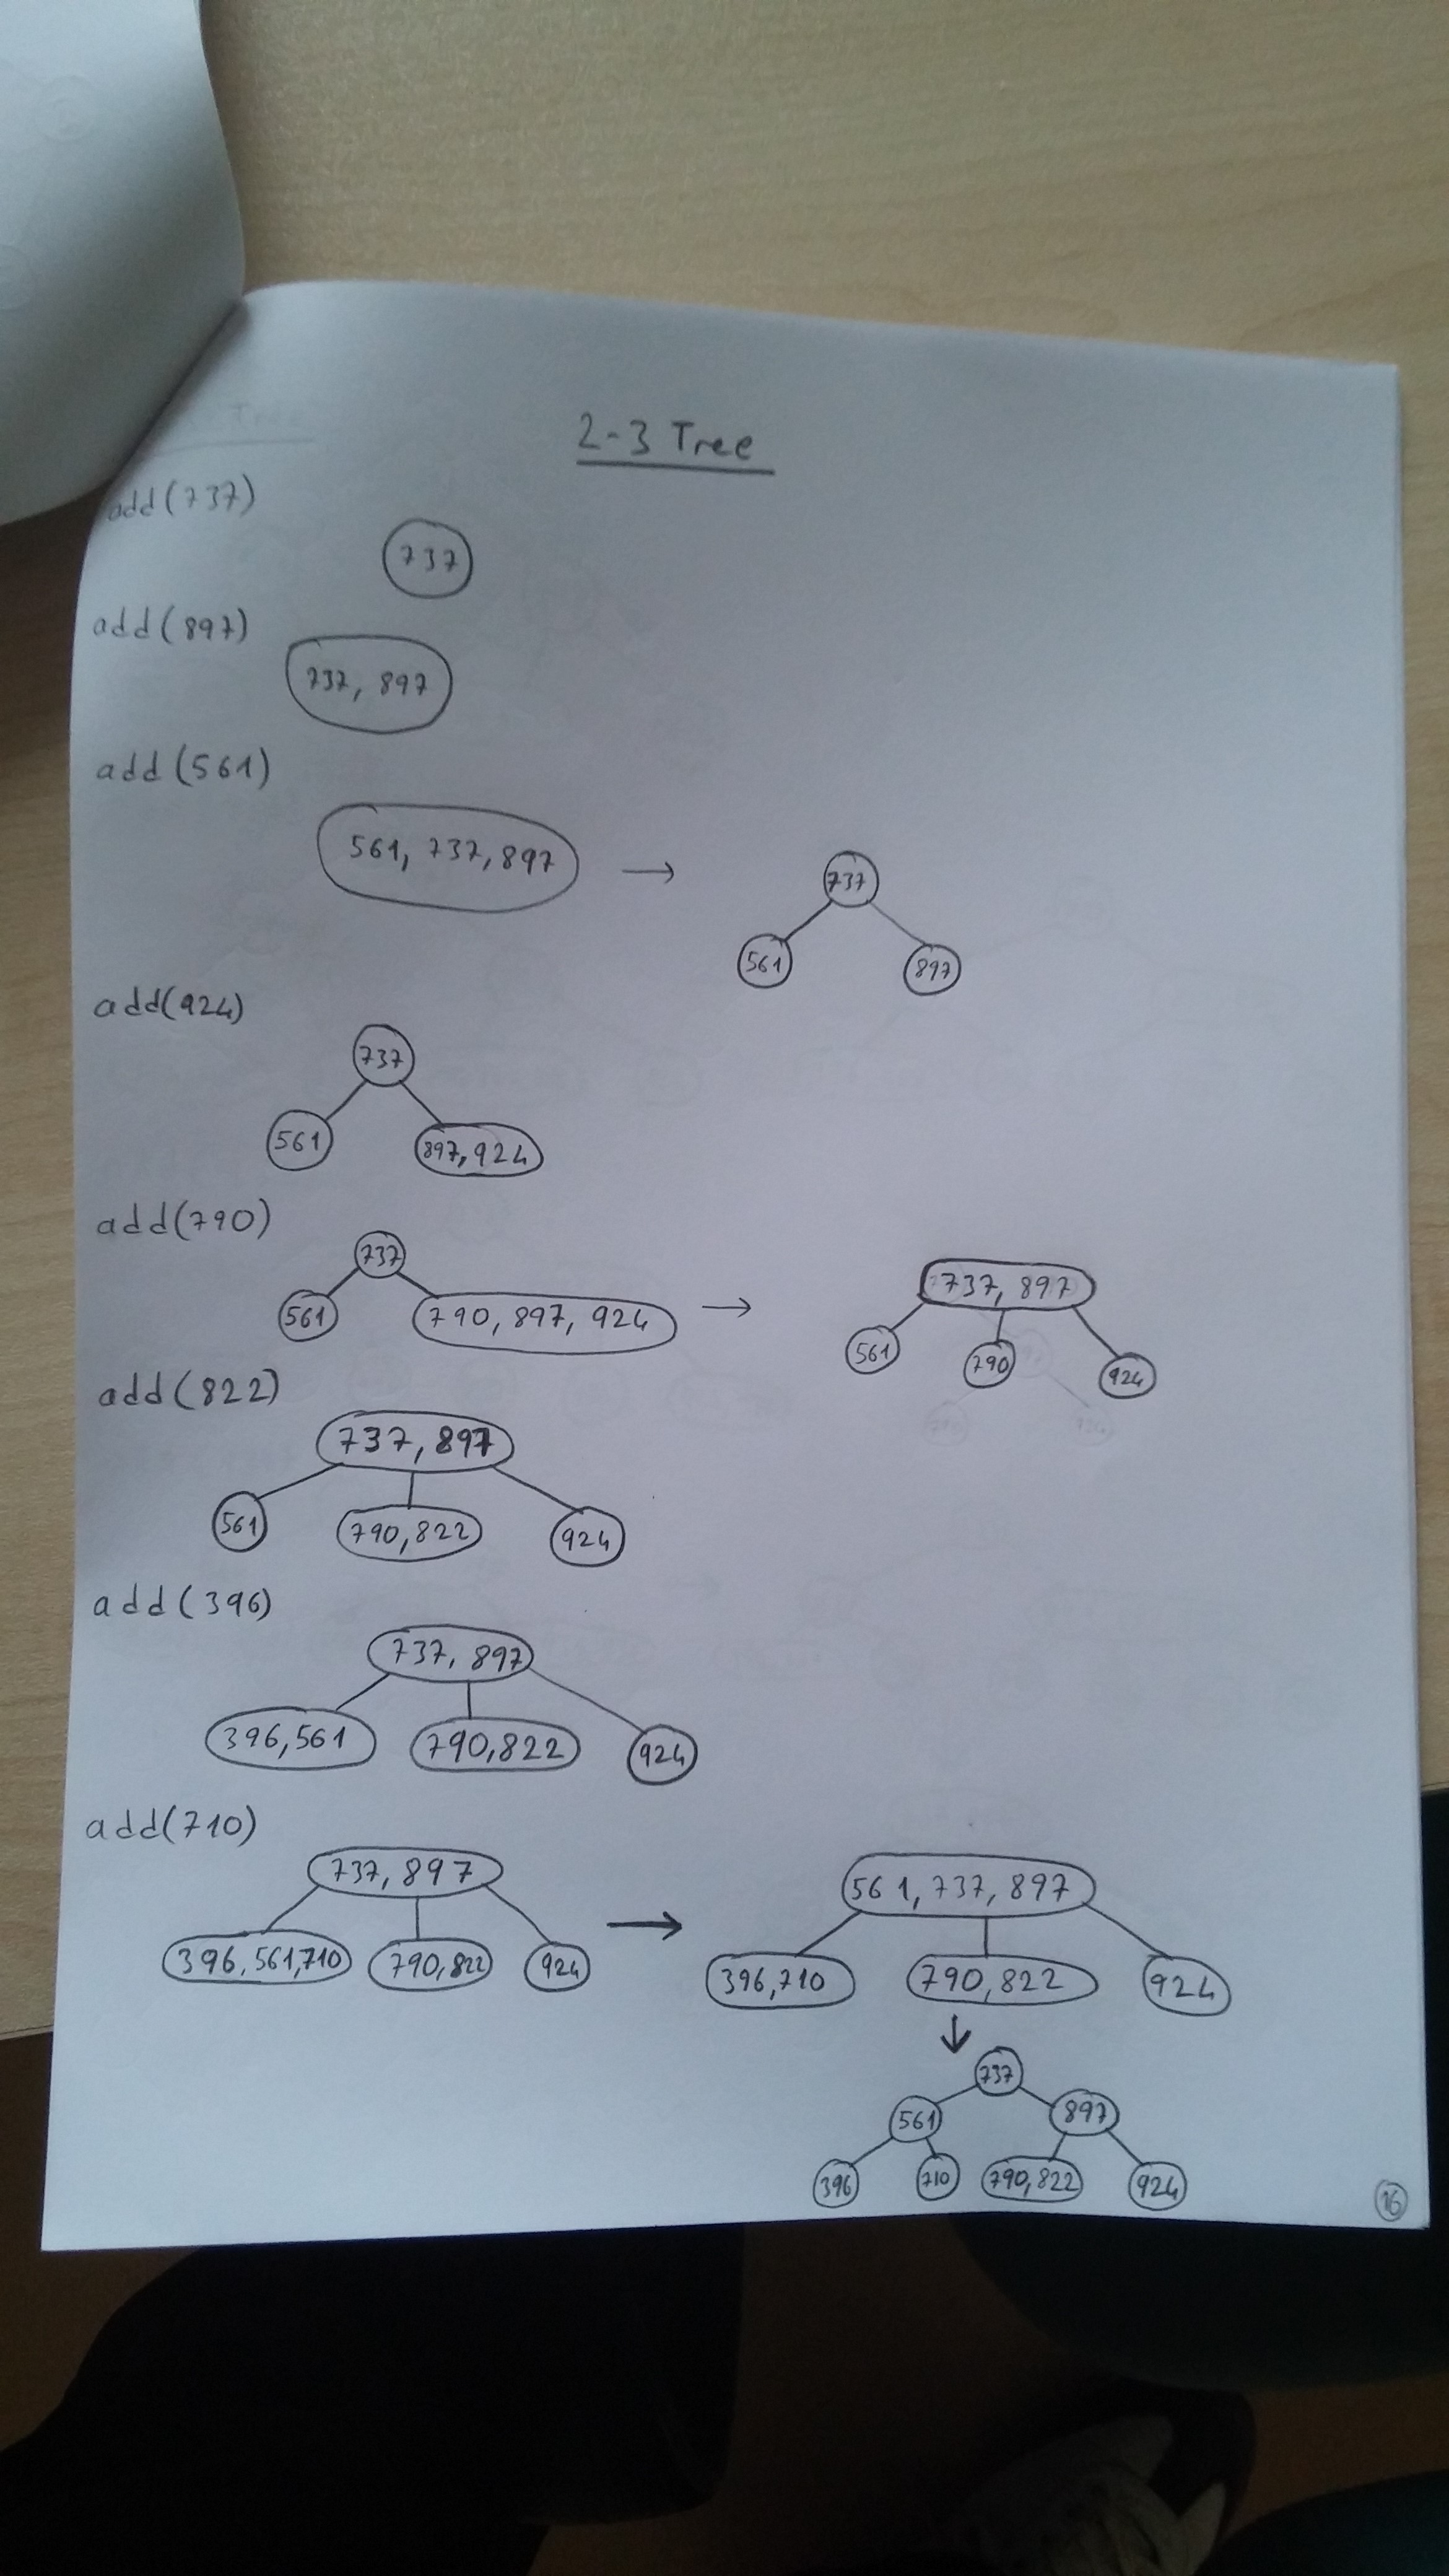 2-3 Tree
add(737)
737
add(897)
737, 897
add(561)
561, 737, 897 →
737
561 897
add(924)
737
561 897, 924
add(790)
737
561 790, 897, 924 →
737, 897
561 790 924
add(822)
737, 897
561 790, 822 924
add(396)
737, 897
396, 561 790, 822 924
add(710)
737, 897
396, 561, 710 790, 822 924 →
561, 737, 897
396, 710 790, 822 924
↓
737
561 897
396 710 790, 822 924
16